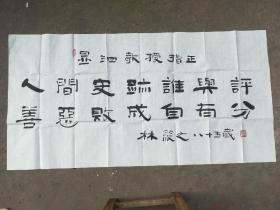 泗教授指正
人間史跡誰與評
善惡敗成自有分
林之八十五歲